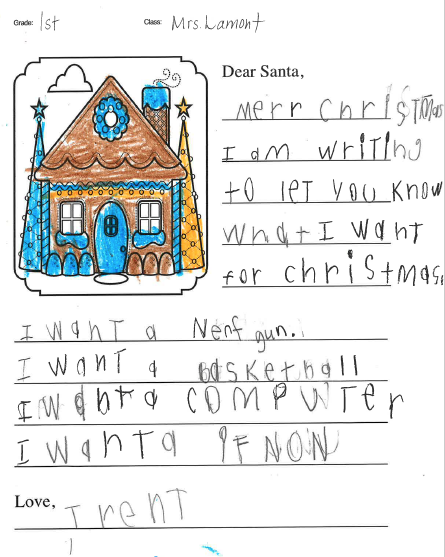 Grade: 1st Class: Mrs. Lamont
Dear Santa,
Merr christmas
I am writing
to let you know
what I want
for christmas.
I want a Nerf gun.
I want a basketball
I want a computer
I want a IFNON
Love, Trent